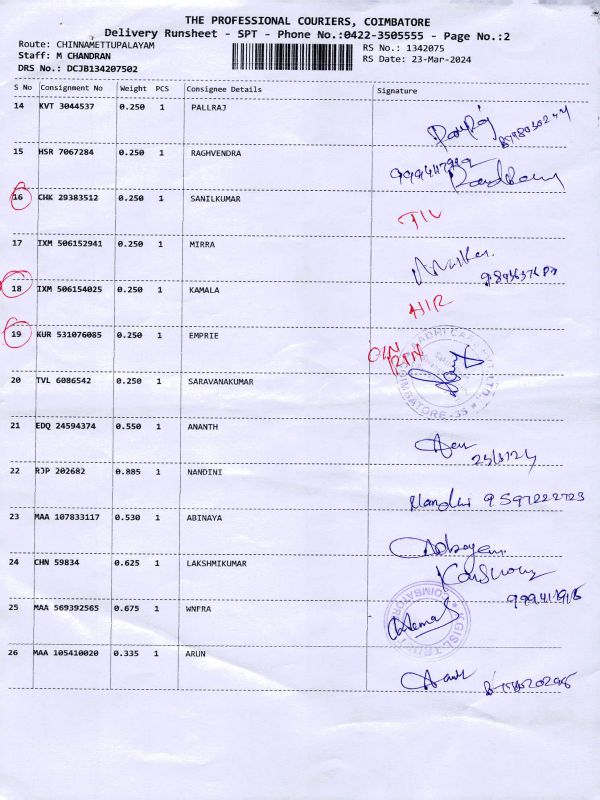 THE PROFESSIONAL COURIERS, COIMBATORE
Delivery Runsheet - SPT - Phone No.:0422-3505555 - Page No.:2
Route: CHINNAMETTUPALAYAM
Staff: M CHANDRAN
DRS No.: DCJB134207502
RS No.: 1342075
RS Date: 23-Mar-2024
S No Consignment No Weight PCS Consignee Details Signature
14 KVT 3044537 0.250 1 PALLRAJ
15 HSR 7067284 0.250 1 RAGHVENDRA
16 CHK 29383512 0.250 1 SANILKUMAR
17 IXM 506152941 0.250 1 MIRRA
18 IXM 506154025 0.250 1 KAMALA HIR
19 KUR 531076085 0.250 1 EMPRIE
20 TVL 6086542 0.250 1 SARAVANAKUMAR
COIMBATORE-35
21 EDQ 24594374 0.550 1 ANANTH
22 RJP 202682 0.885 1 NANDINI
Nandini 9597222723
23 MAA 107833117 0.530 1 ABINAYA
24 CHN 59834 0.625 1 LAKSHMIKUMAR
25 MAA 569392565 0.675 1 WNFRA
COIMBATORE
26 MAA 105410020 0.335 1 ARUN